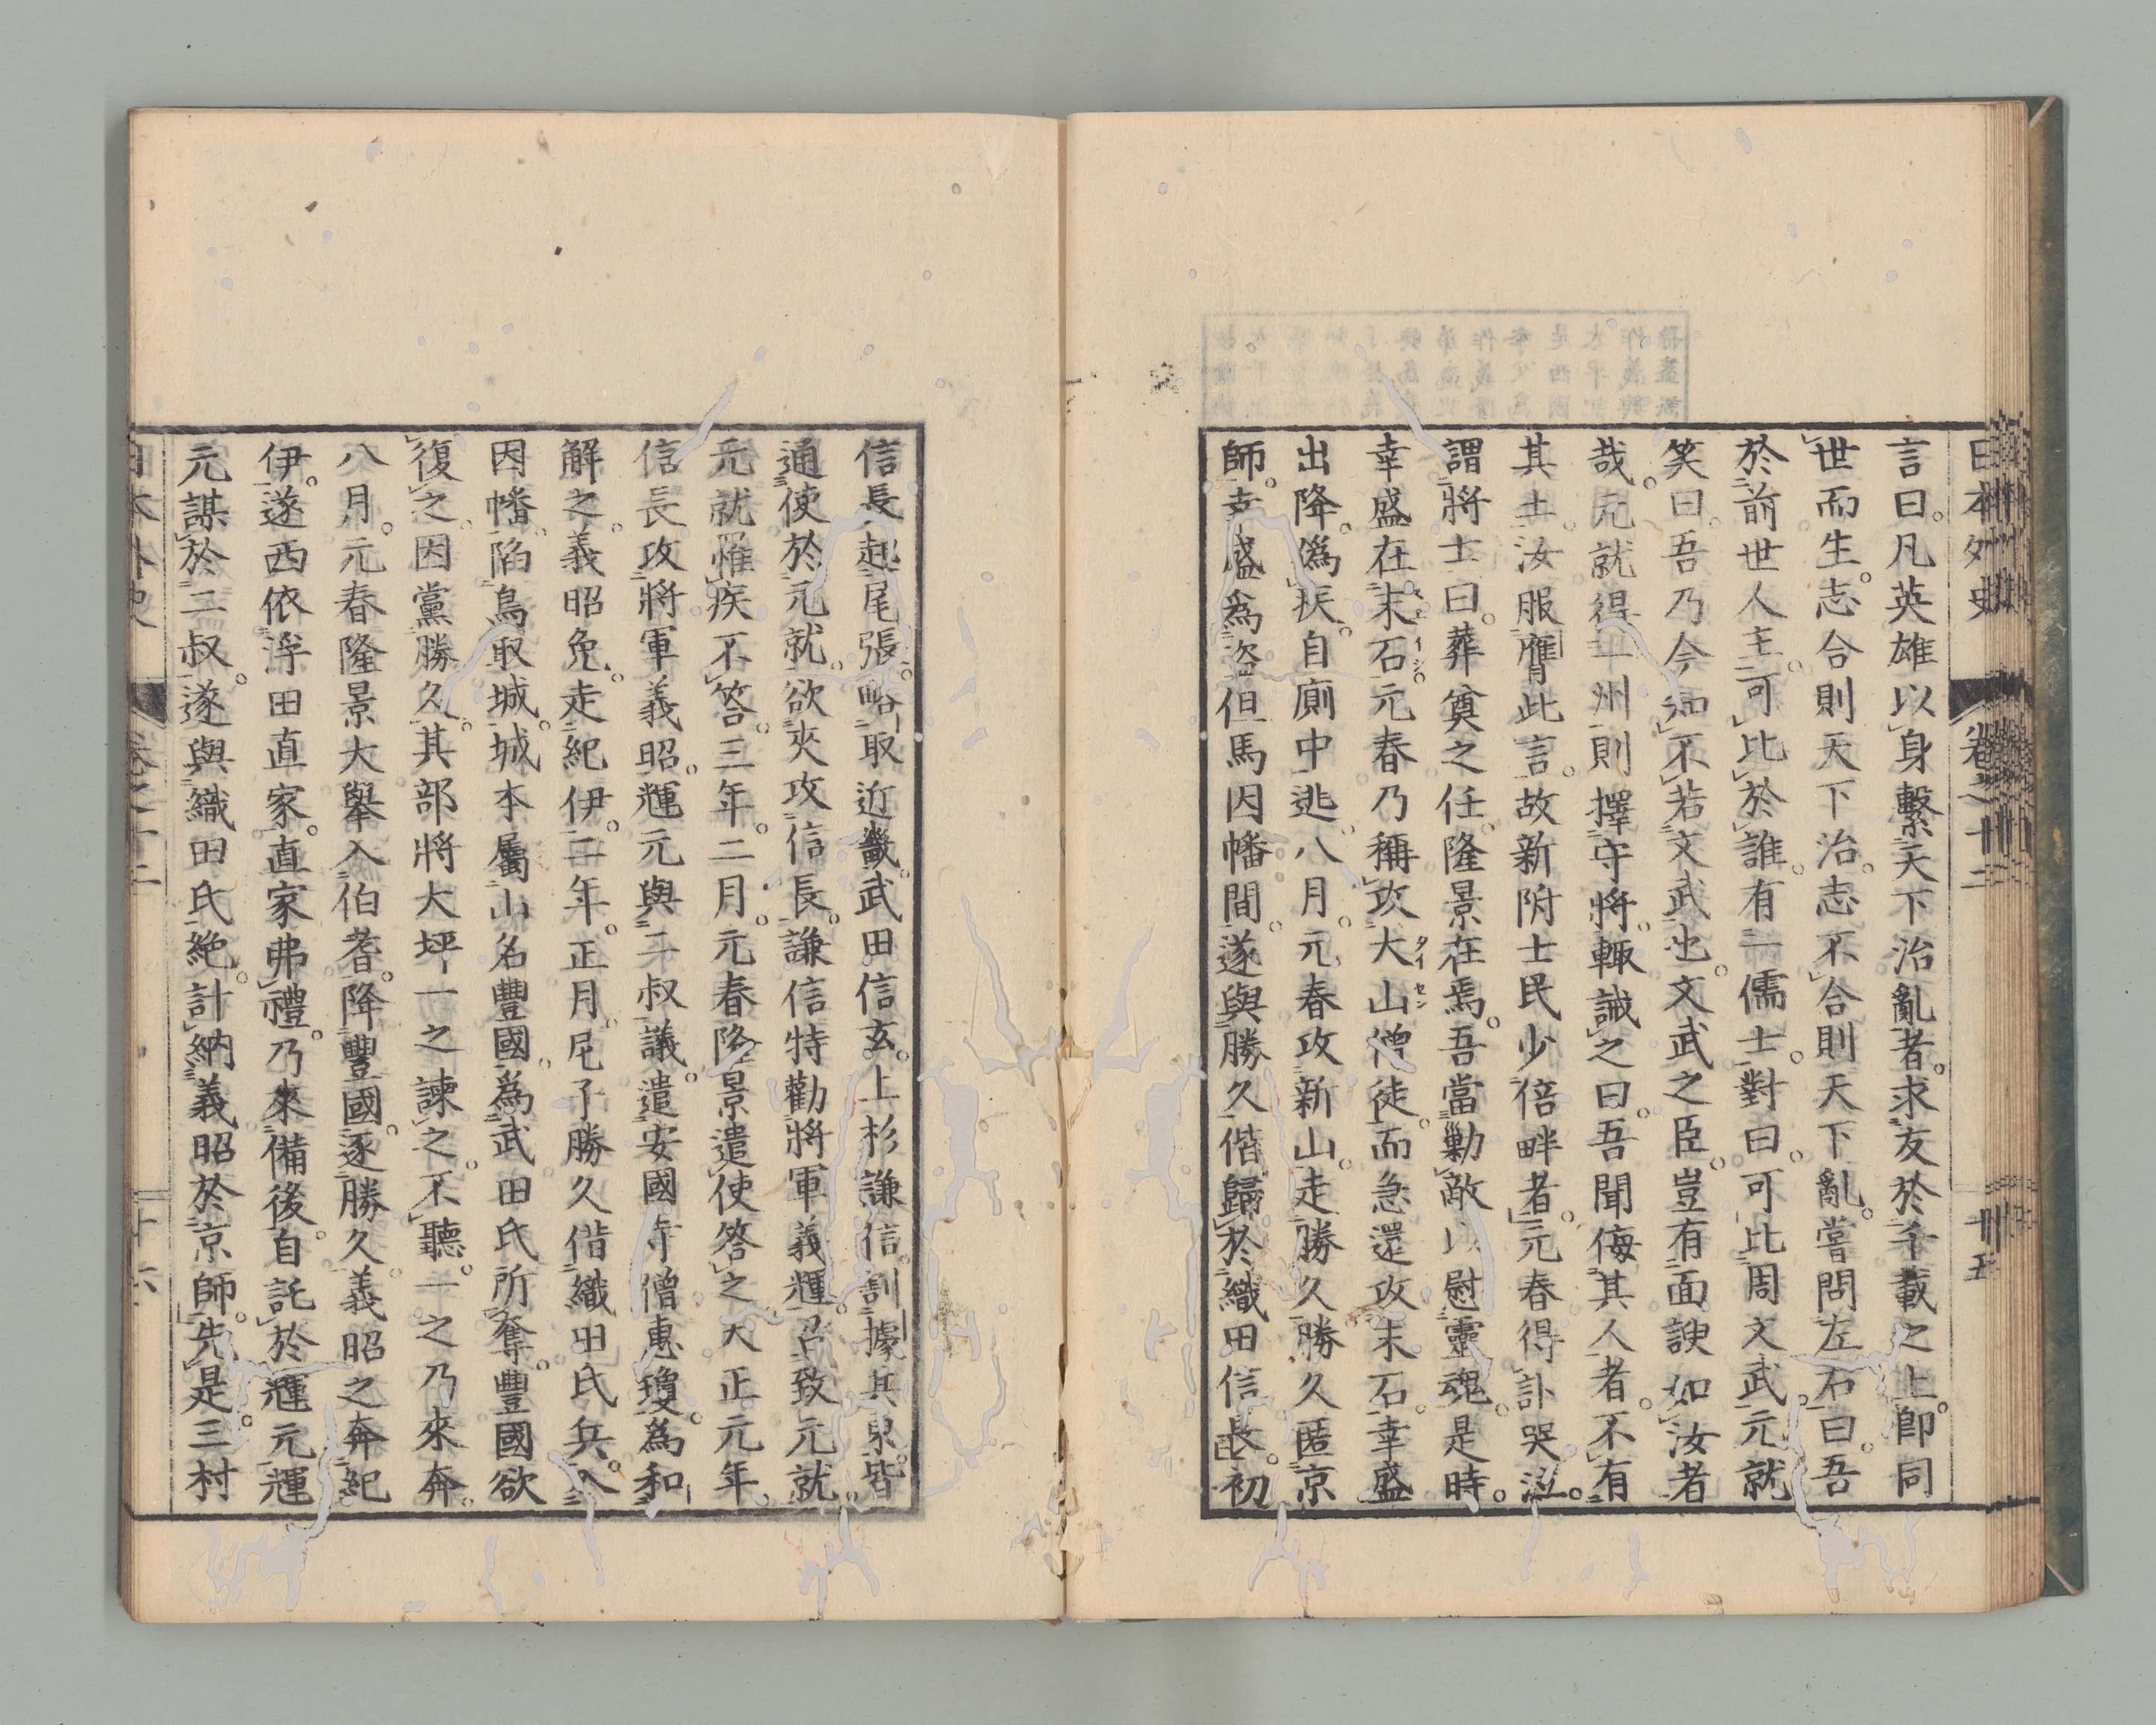 日本外史 卷之十二 廿五
言曰。凡英雄以身繫天下治亂者。求友於千載之上。卽同
世而生。志合則天下治。志不合則天下亂。嘗問左右曰。吾
於前世人主。可比於誰。有一儒士。對曰。可比周文武。元就
笑曰。吾乃今知不若文武也。文武之臣。豈有面諛如汝者
哉。元就得一州。則擇守將。輙誡之曰。吾聞侮其人者。不有
其土。汝服膺此言。故新附士民少倍畔者。元春得訃哭泣。
謂將士曰。葬奠之任。隆景在焉。吾當勦敵以慰靈魂。是時。
幸盛在末石。元春乃稱攻大山僧徒。而急還攻末石。幸盛
出降。僞疾。自廁中逃。八月。元春攻新山。走勝久。勝久匿京
師。幸盛爲盜但馬因幡間。遂與勝久偕歸於織田信長。初
信長起尾張。略取近畿。武田信玄。上杉謙信。割據其東。皆
通使於元就。欲夾攻信長。謙信特勸將軍義輝。召致元就。
元就罹疾不答。三年。二月。元春隆景遣使答之。天正元年。
信長攻將軍義昭。輝元與二叔議。遣安國寺僧惠瓊。爲和
解之。義昭免。走紀伊。二年。正月。尼子勝久偕織田氏兵。入
因幡。陷鳥取城。城本屬山名豐國。爲武田氏所奪。豐國欲
復之。因黨勝久。其部將大坪一之諫之。不聽。一之乃來奔。
八月。元春隆景大擧入伯耆。降豐國。逐勝久。義昭之奔紀
伊。遂西依浮田直家。直家弗禮。乃來備後。自託於輝元。輝
元謀於二叔。遂與織田氏絶。計納義昭於京師。先是。三村
日本外史 卷之十二 廿六